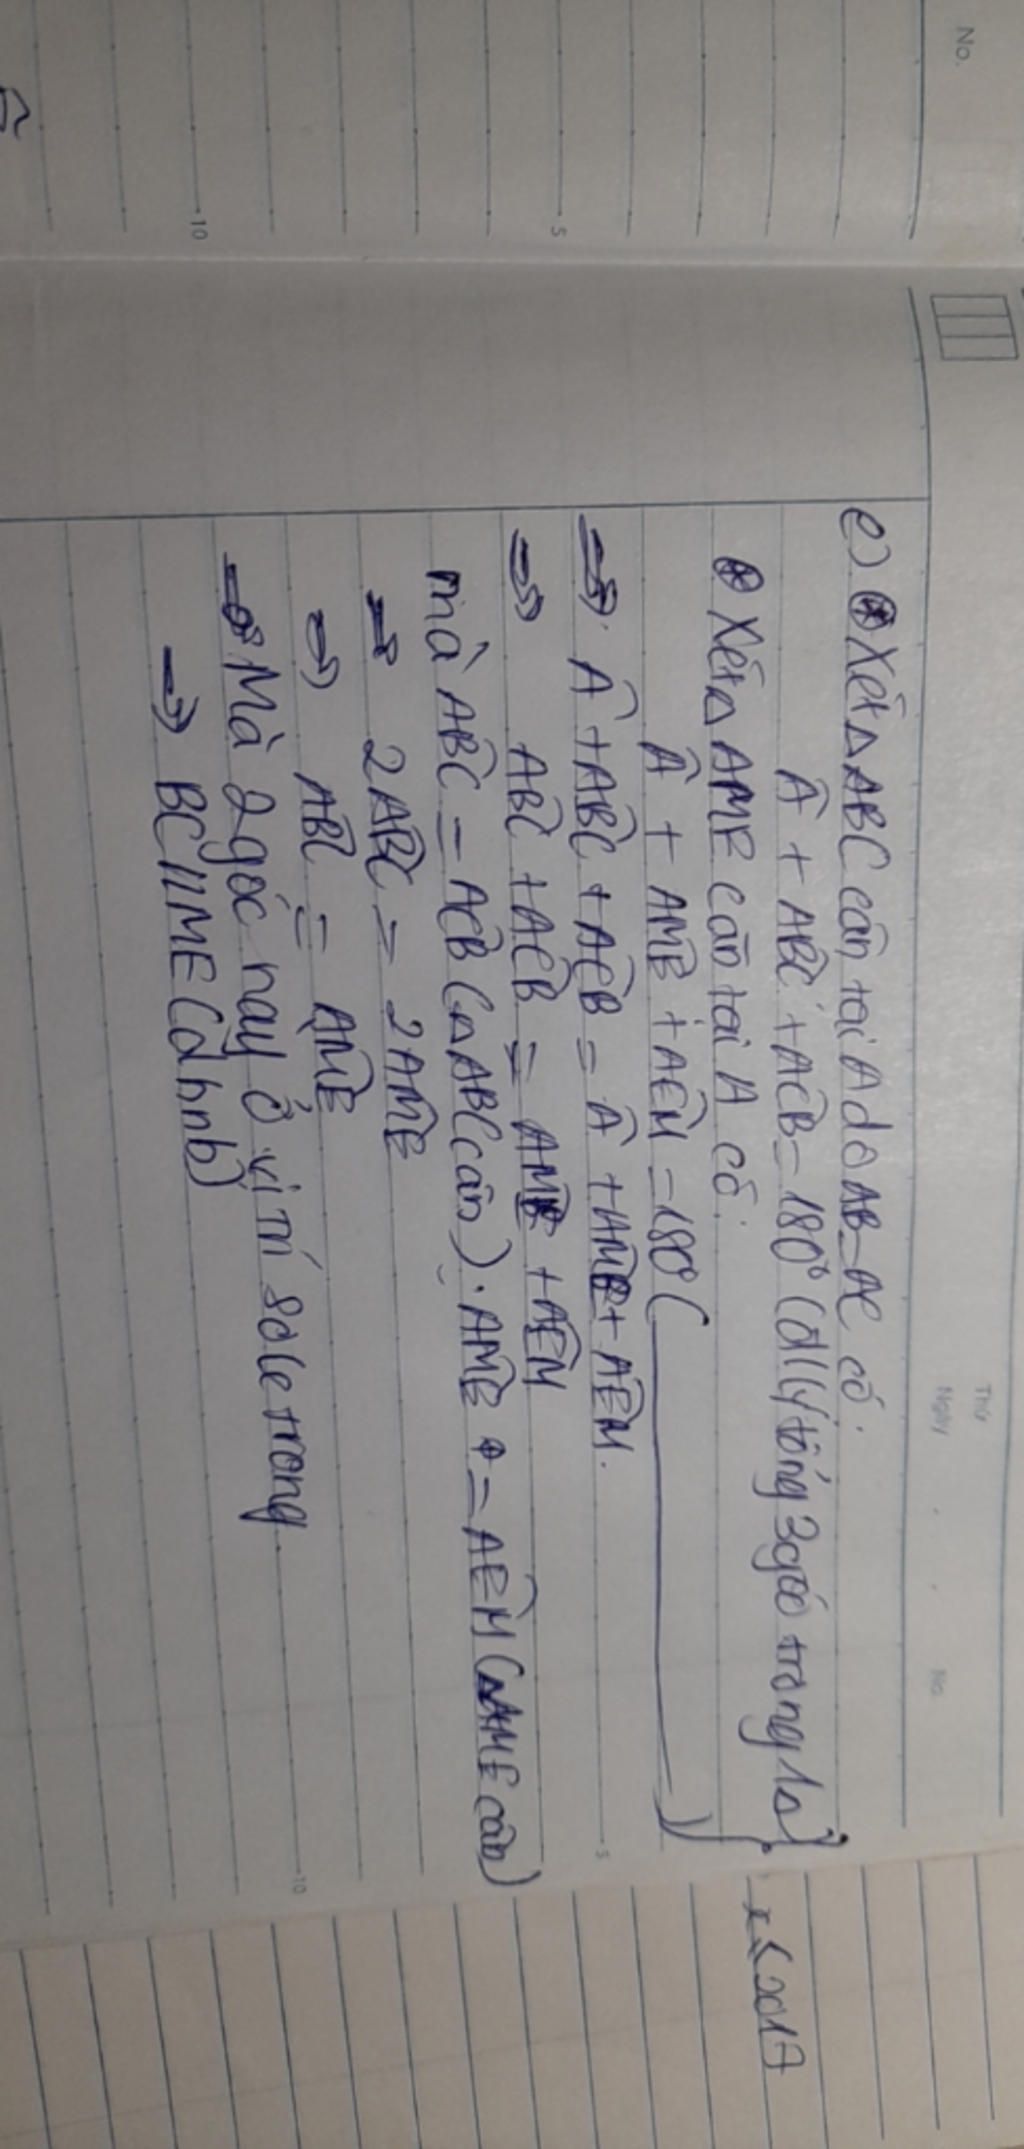 No.
Thứ
Ngày
No.
e) Xét △ABC cân tại A do AB=AC có:
Â + ABĈ + AĈB = 180° (đ/lý tổng 3 góc trong 1△)
Xét △AME cân tại A có:
Â + AM̂E + AÊM = 180° ( )
⇒ Â + AB̂C + AĈB = Â + AM̂E + AÊM.
⇒ AB̂C + AĈB = AM̂E + AÊM
mà AB̂C = AĈB (△ABC cân). AM̂E = AÊM (△AME cân)
⇒ 2AB̂C = 2AM̂E
⇒ AB̂C = AM̂E
→ Mà 2 góc này ở vị trí so le trong
⇒ BC//ME (đhnb)
5
10
5
10